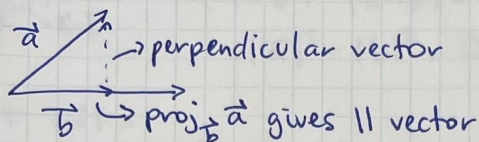 a⃗
→perpendicular vector
b⃗ ↪ proj_b⃗ a⃗ gives || vector